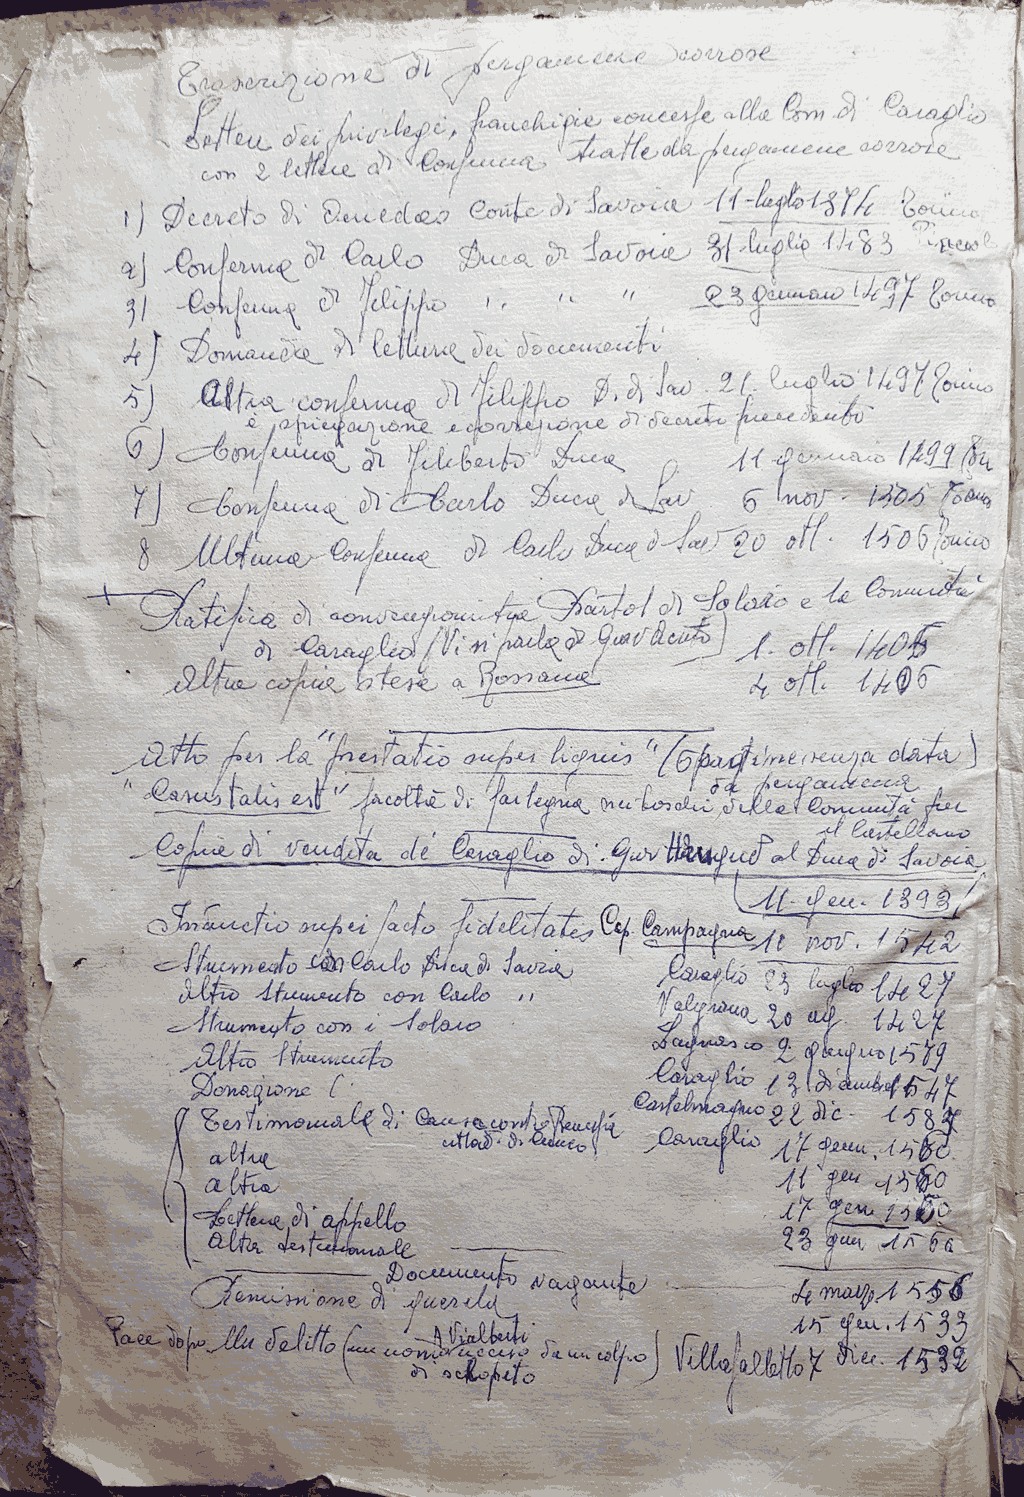 Trascrizione di pergamene corrose
Lettere dei privilegi, franchigie concesse alla Com. di Caraglio
con 2 lettere di Conferma tratte da pergamene corrose
1) Decreto di Amedeo Conte di Savoia 11 luglio 1374 Torino
2) Conferma di Carlo Duca di Savoia 31 luglio 1483
3) Conferma di Filippo " " " 23 gennaio 1497 Torino
4) Domanda di lettura dei documenti
5) Altra conferma di Filippo D. di Sav. 21 luglio 1497 Torino
e spiegazione e correzione di decreti precedenti
6) Conferma di Filiberto Duca 11 gennaio 1499 Tori
7) Conferma di Carlo Duca di Sav 6 nov. 1505 Torino
8 Ultima Conferma di Carlo Duca d Sav 20 ott. 1506 Torino
+ Ratifica di convenzioni tra Bartol di Solaro e la Comunità
di Caraglio (Vi si parla di Guov Acuto) 1. ott. 1405
Altra copia stesa a Rossana 4 ott. 1406
Atto per la "prestatio super lignis" (6 parti senza data)
da pergamena
"Casustalis est" facoltà di far legna nei boschi della Comunità per
il Castellano
Copia di vendita de Caraglio di al Duca di Savoia
11 gen. 1393
super facto fidelitatis Cap. Campagna 11 nov. 1542
Strumento con Carlo Duca di Savoia Caraglio 23 luglio 1427
Altro Strumento con Carlo " Valgrana 20 ag. 1427
Strumento con i Solaro Lagnasco 2 giugno 1579
Altro Strumento Caraglio 13 Dicembre 1547
Donazione ( Castelmagno 22 dic. 1587
Testimoniale di Causa contro
cittad. di Cuneo Caraglio 17 genn. 1560
altra 11 gen 1560
altra 17 gen 1560
Lettera di appello 23 gen 1560
Altra testimoniale
Documento vagante 4 marzo 1556
Remissione di querela 15 gen. 1533
A Vialberti
Pace dopo Un delitto (un uomo ucciso da un colpo) Villafalletto 7 Dic. 1532
di schopeto